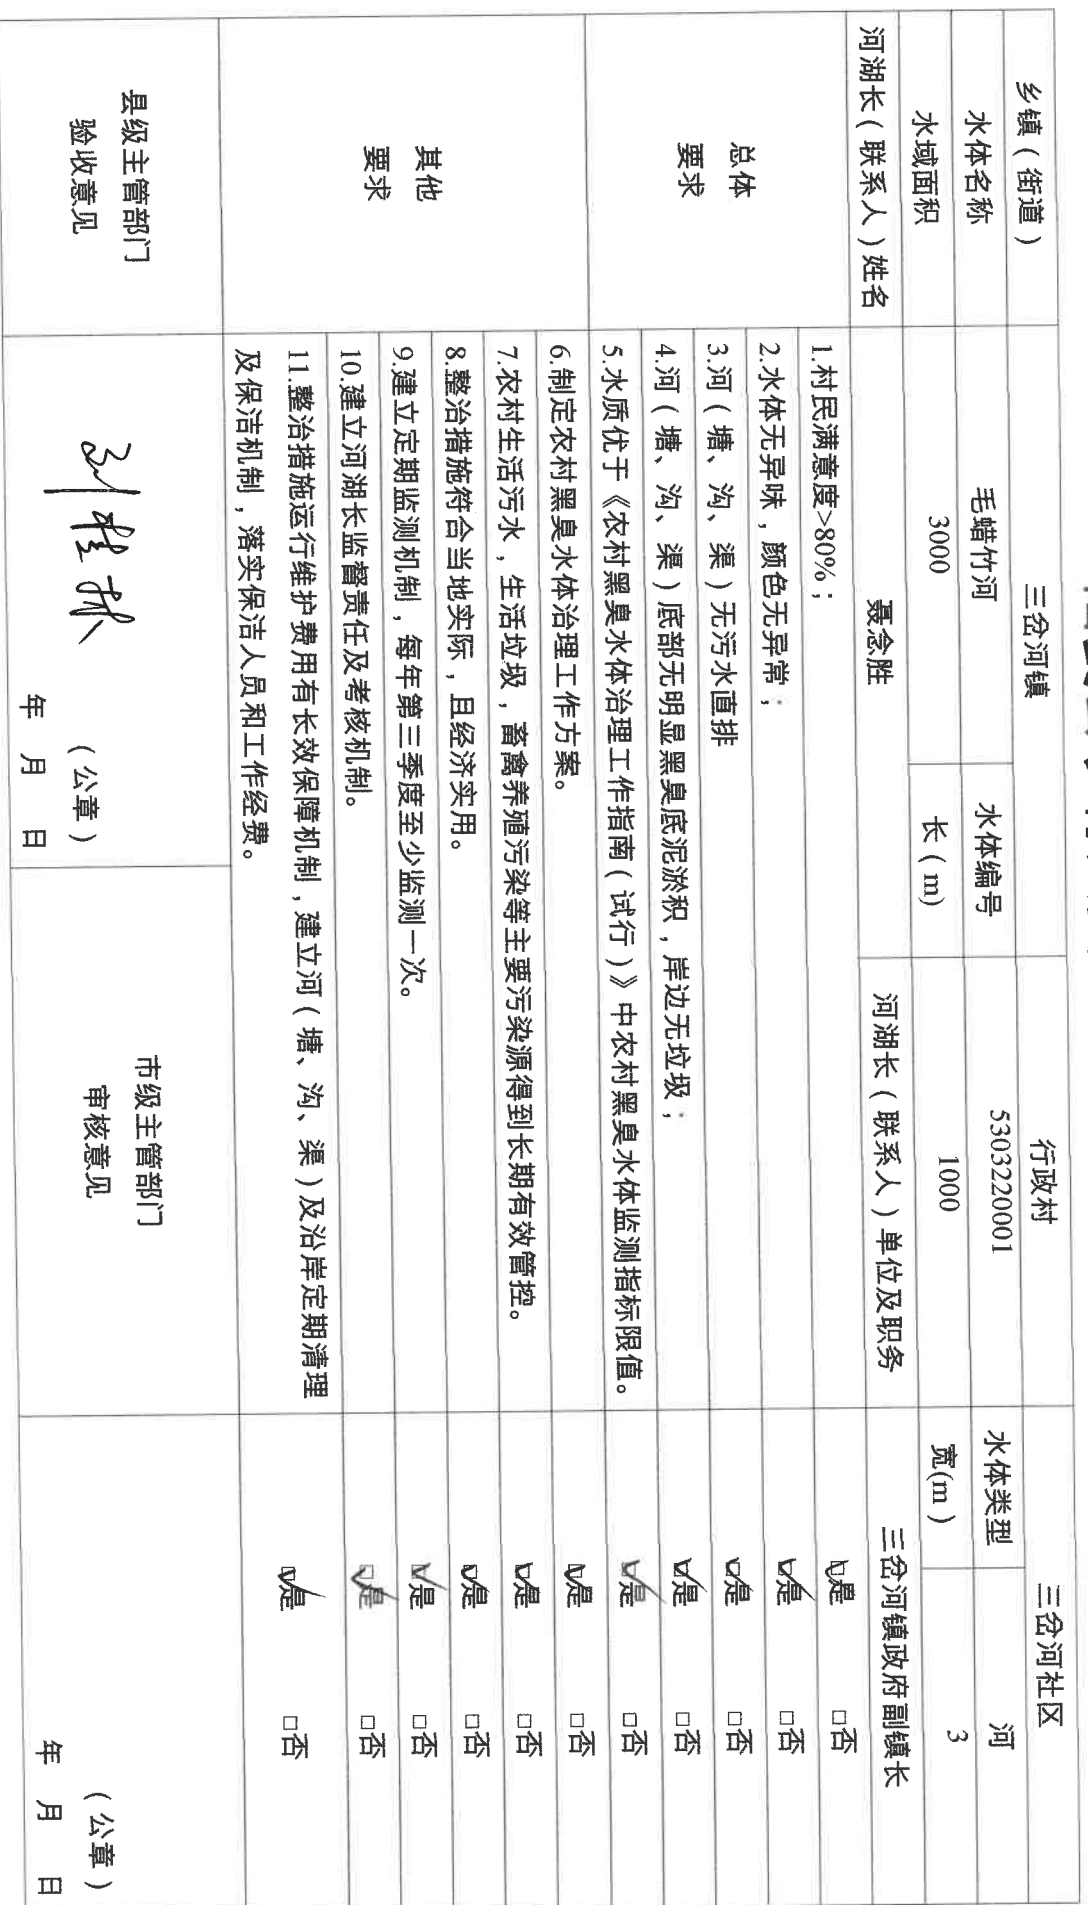 乡镇（街道） 三岔河镇 行政村 三岔河社区
水体名称 毛蜡竹河 水体编号 5303220001 水体类型 河
水域面积 3000 长（m） 1000 宽(m） 3
河湖长（联系人）姓名 聂念胜 河湖长（联系人）单位及职务 三岔河镇政府副镇长
总体
要求
1.村民满意度>80%； ☑是 □否
2.水体无异味，颜色无异常； ☑是 □否
3.河（塘、沟、渠）无污水直排 ☑是 □否
4.河（塘、沟、渠）底部无明显黑臭底泥淤积，岸边无垃圾； ☑是 □否
5.水质优于《农村黑臭水体治理工作指南（试行）》中农村黑臭水体监测指标限值。 ☑是 □否
其他
要求
6.制定农村黑臭水体治理工作方案。 ☑是 □否
7.农村生活污水，生活垃圾，畜禽养殖污染等主要污染源得到长期有效管控。 ☑是 □否
8.整治措施符合当地实际，且经济实用。 ☑是 □否
9.建立定期监测机制，每年第三季度至少监测一次。 ☑是 □否
10.建立河湖长监督责任及考核机制。 ☑是 □否
11.整治措施运行维护费用有长效保障机制，建立河（塘、沟、渠）及沿岸定期清理
及保洁机制，落实保洁人员和工作经费。 ☑是 □否
县级主管部门
验收意见
（公章）
年 月 日
市级主管部门
审核意见
（公章）
年 月 日